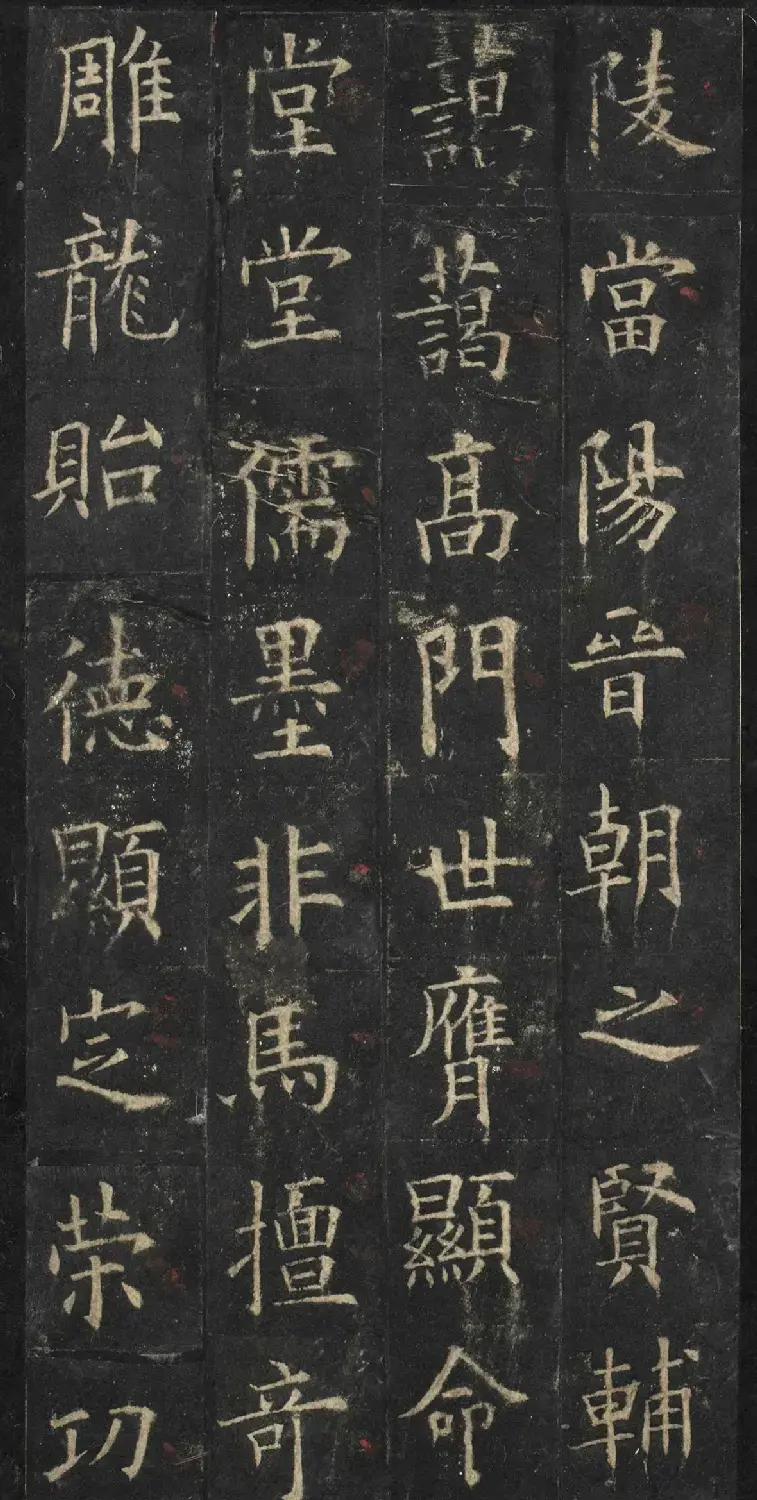 陵當陽晉朝之賢輔
藹藹高門世膺顯命
堂堂儒墨非馬擅奇
雕龍貽德顯定榮功